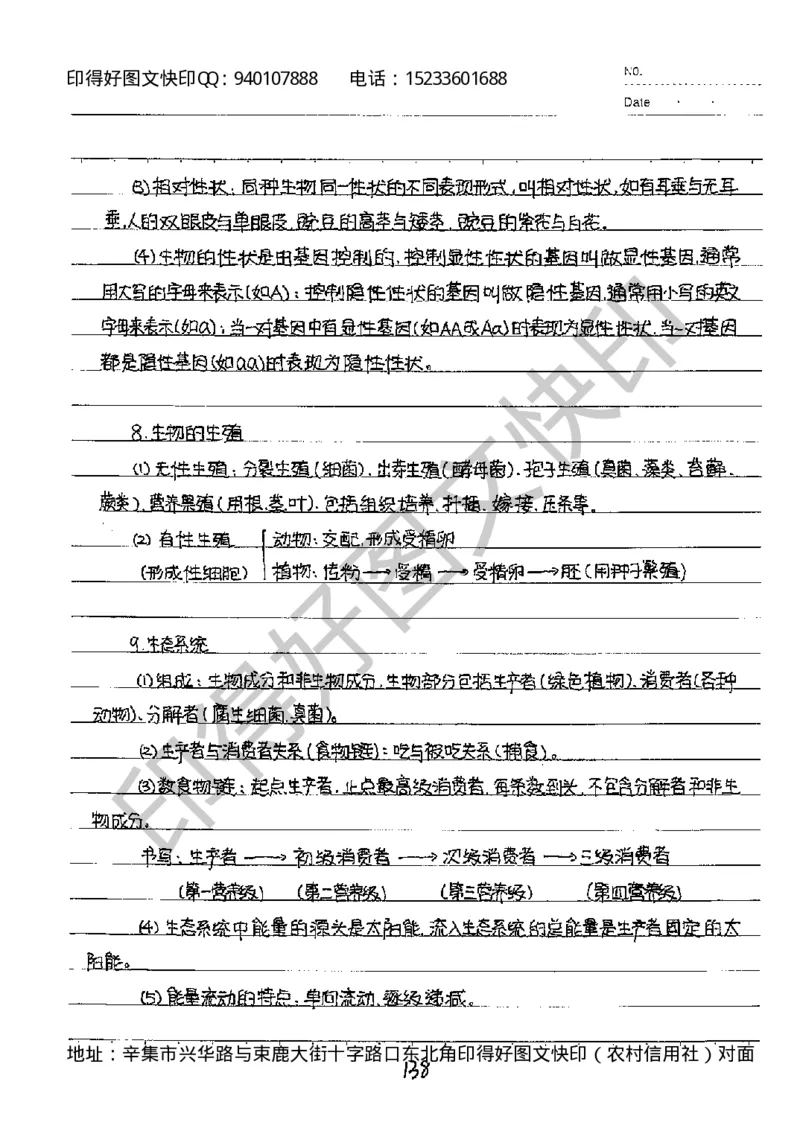 印得好图文快印QQ：940107888 电话：15233601688
NO.
Date · ·
(3)相对性状：同种生物同一性状的不同表现形式,叫相对性状,如有耳垂与无耳
垂,人的双眼皮与单眼皮,豌豆的高茎与矮茎,豌豆的紫花与白花。
(4)生物的性状是由基因控制的,控制显性性状的基因叫做显性基因,通常
用大写的字母来表示(如A)；控制隐性性状的基因叫做隐性基因,通常用小写的英文
字母来表示(如a)；当一对基因中有显性基因(如AA或Aa)时表现为显性性状,当一对基因
都是隐性基因(如aa)时表现为隐性性状。
8.生物的生殖
(1)无性生殖：分裂生殖(细菌).出芽生殖(酵母菌).孢子生殖(真菌、藻类、苔藓、
蕨类)、营养繁殖(用根.茎.叶).包括组织培养.扦插.嫁接.压条等。
(2)有性生殖 动物：交配.形成受精卵
(形成性细胞) 植物：传粉→受精→受精卵→胚(用种子繁殖)
9.生态系统
(1)组成：生物成分和非生物成分,生物部分包括生产者(绿色植物)、消费者(各种
动物)、分解者(腐生细菌.真菌)。
(2)生产者与消费者关系(食物链)：吃与被吃关系(捕食)。
(3)数食物链：起点生产者,止点最高级消费者,每条数到头,不包含分解者和非生
物成分。
书写：生产者→初级消费者→次级消费者→三级消费者
(第一营养级) (第二营养级) (第三营养级) (第四营养级)
(4)生态系统中能量的源头是太阳能,流入生态系统的总能量是生产者固定的太
阳能。
(5)能量流动的特点：单向流动,逐级递减。
印得好图文快印
地址：辛集市兴华路与束鹿大街十字路口东北角印得好图文快印（农村信用社）对面
138